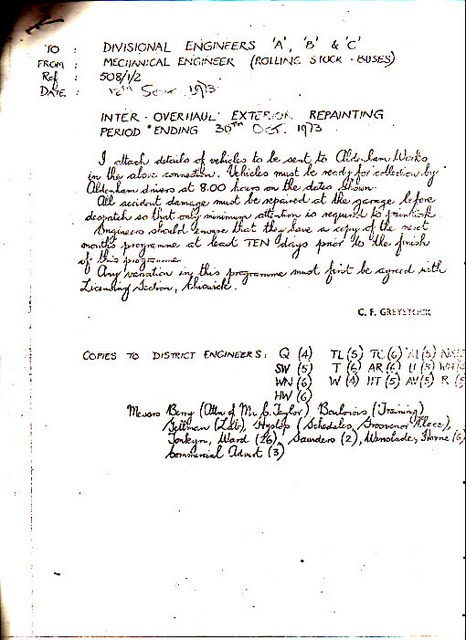 TO : DIVISIONAL ENGINEERS 'A', 'B' & 'C'
FROM : MECHANICAL ENGINEER (ROLLING STOCK - BUSES)
Ref : 508/1/2
DATE : 12th Sept. 1973
INTER-OVERHAUL EXTERIOR REPAINTING
PERIOD ENDING 30TH OCT. 1973
I attach details of vehicles to be sent to Aldenham Works
in the above connection. Vehicles must be ready for collection by
Aldenham drivers at 8.00 hours on the dates shown.
All accident damage must be repaired at the garage before
despatch so that only minimum attention is required to
Engineers should ensure that they have a copy of the next
months programme at least TEN days prior to the finish
of this programme.
Any variation in this programme must first be agreed with
Licensing Section, Chiswick.
C. F. GREYSTOCK
COPIES TO DISTRICT ENGINEERS: Q (4) TL (5) TC (6) AL (5)
SW (5) T (6) AR (6) U (5)
WN (6) W (4) HT (5) AV (5) R (5
HW (6)
Messrs Berry (Attn of Mr. C. Taylor) (Training)
(Lab), Hyslop (Schedules, Grosvenor Place),
Tonkyn, Ward (26), Saunders (2), Horne (6)
Commercial Advert (3)